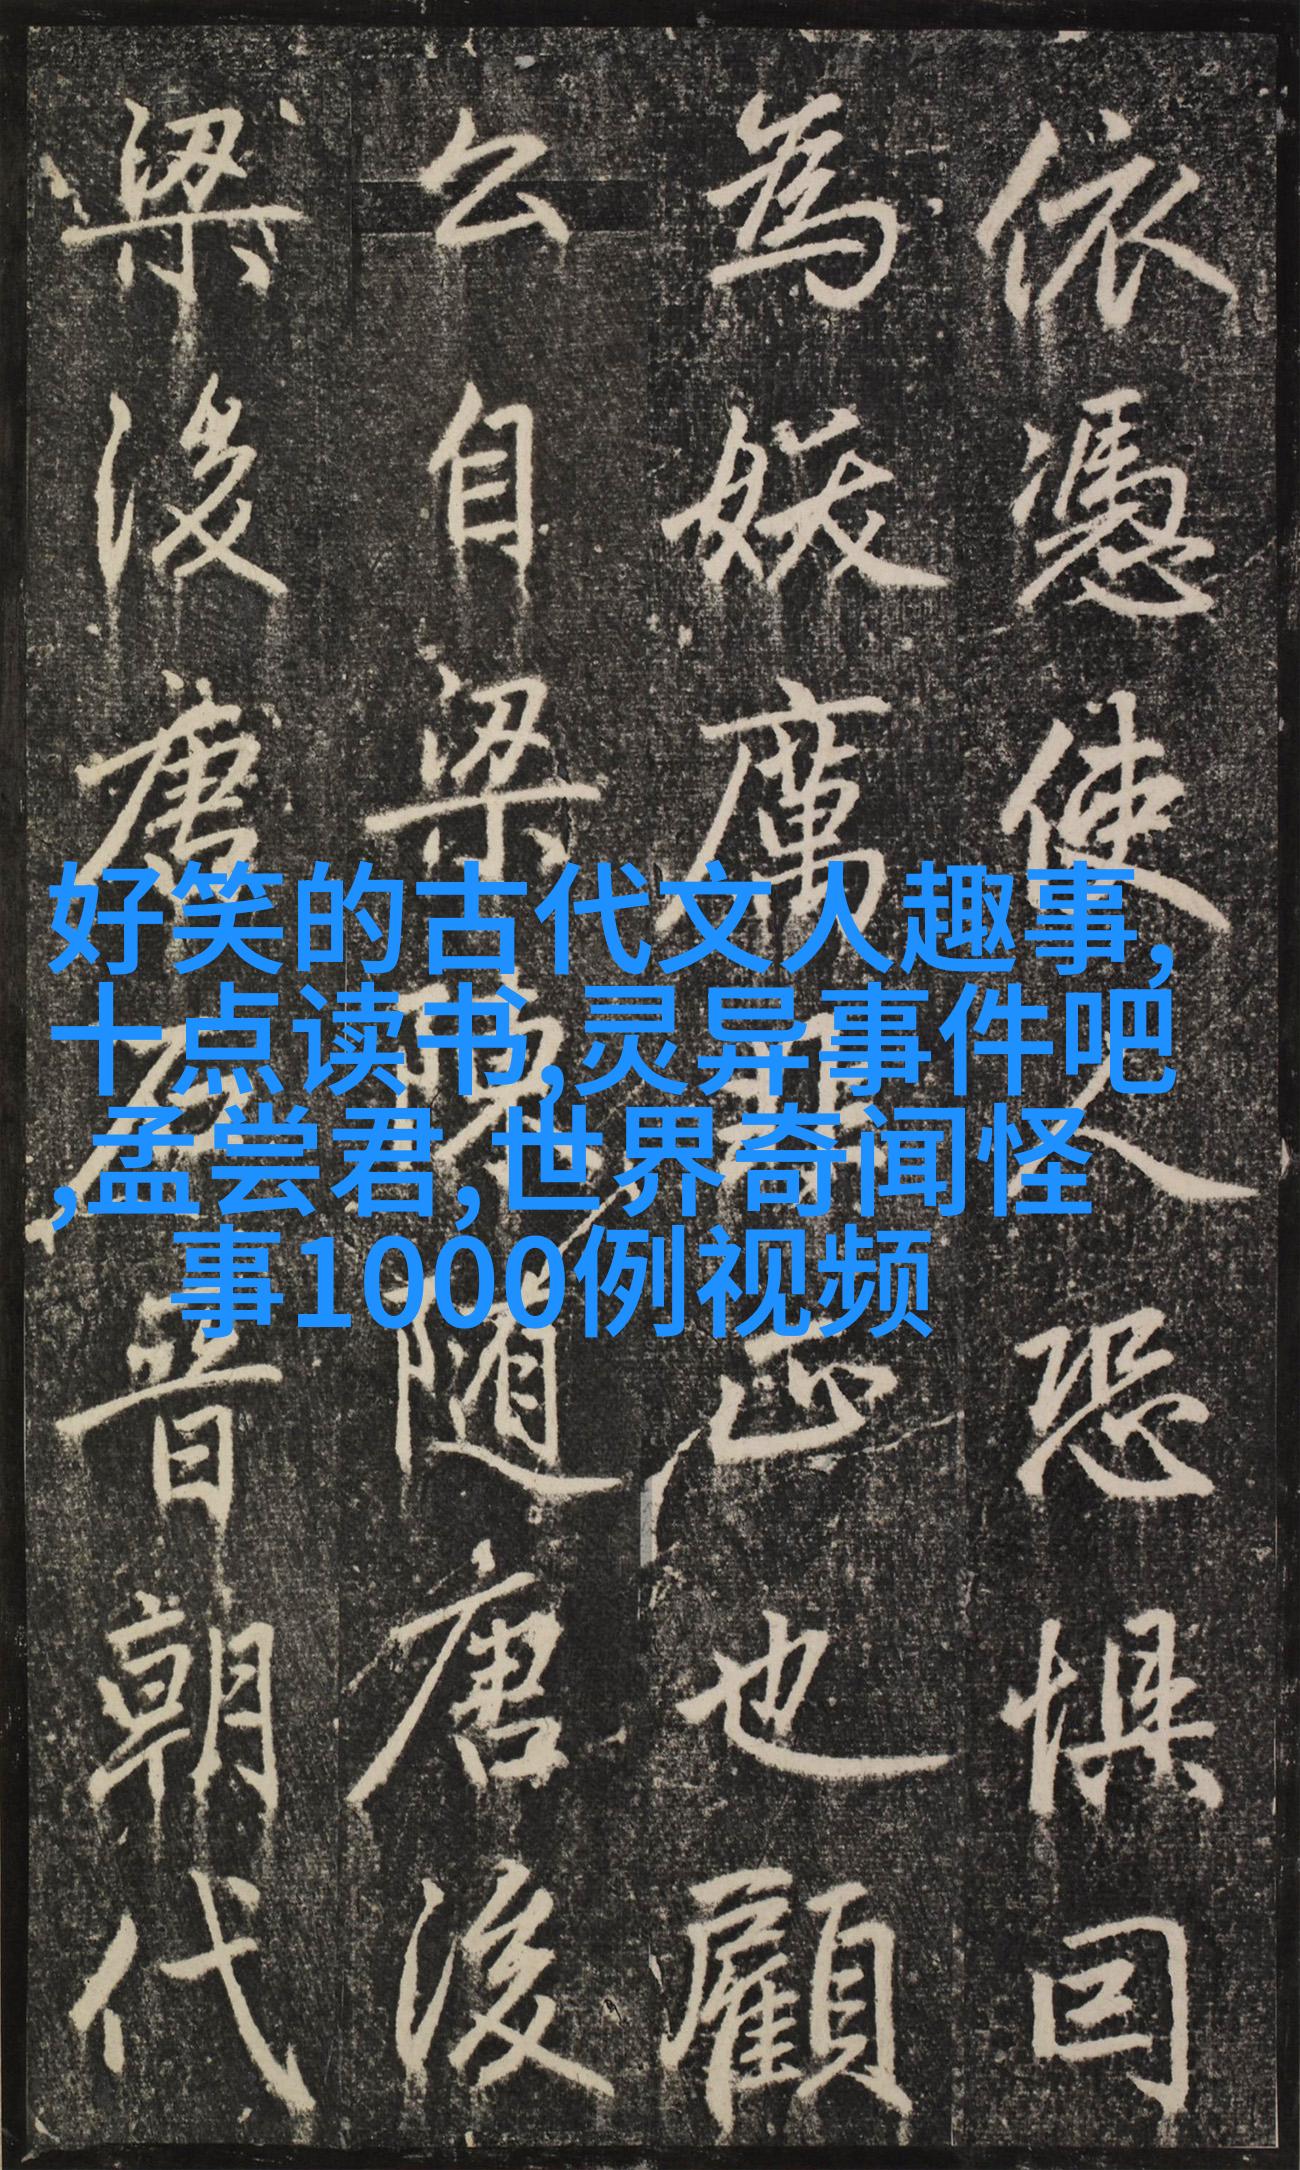 依憑使人恐懼囙
為妖厲非正也顧
公自梁陳随唐後
梁後唐石晉朝代
好笑的古代文人趣事,
十点读书,灵异事件吧
,孟尝君,世界奇闻怪
事1000例视频